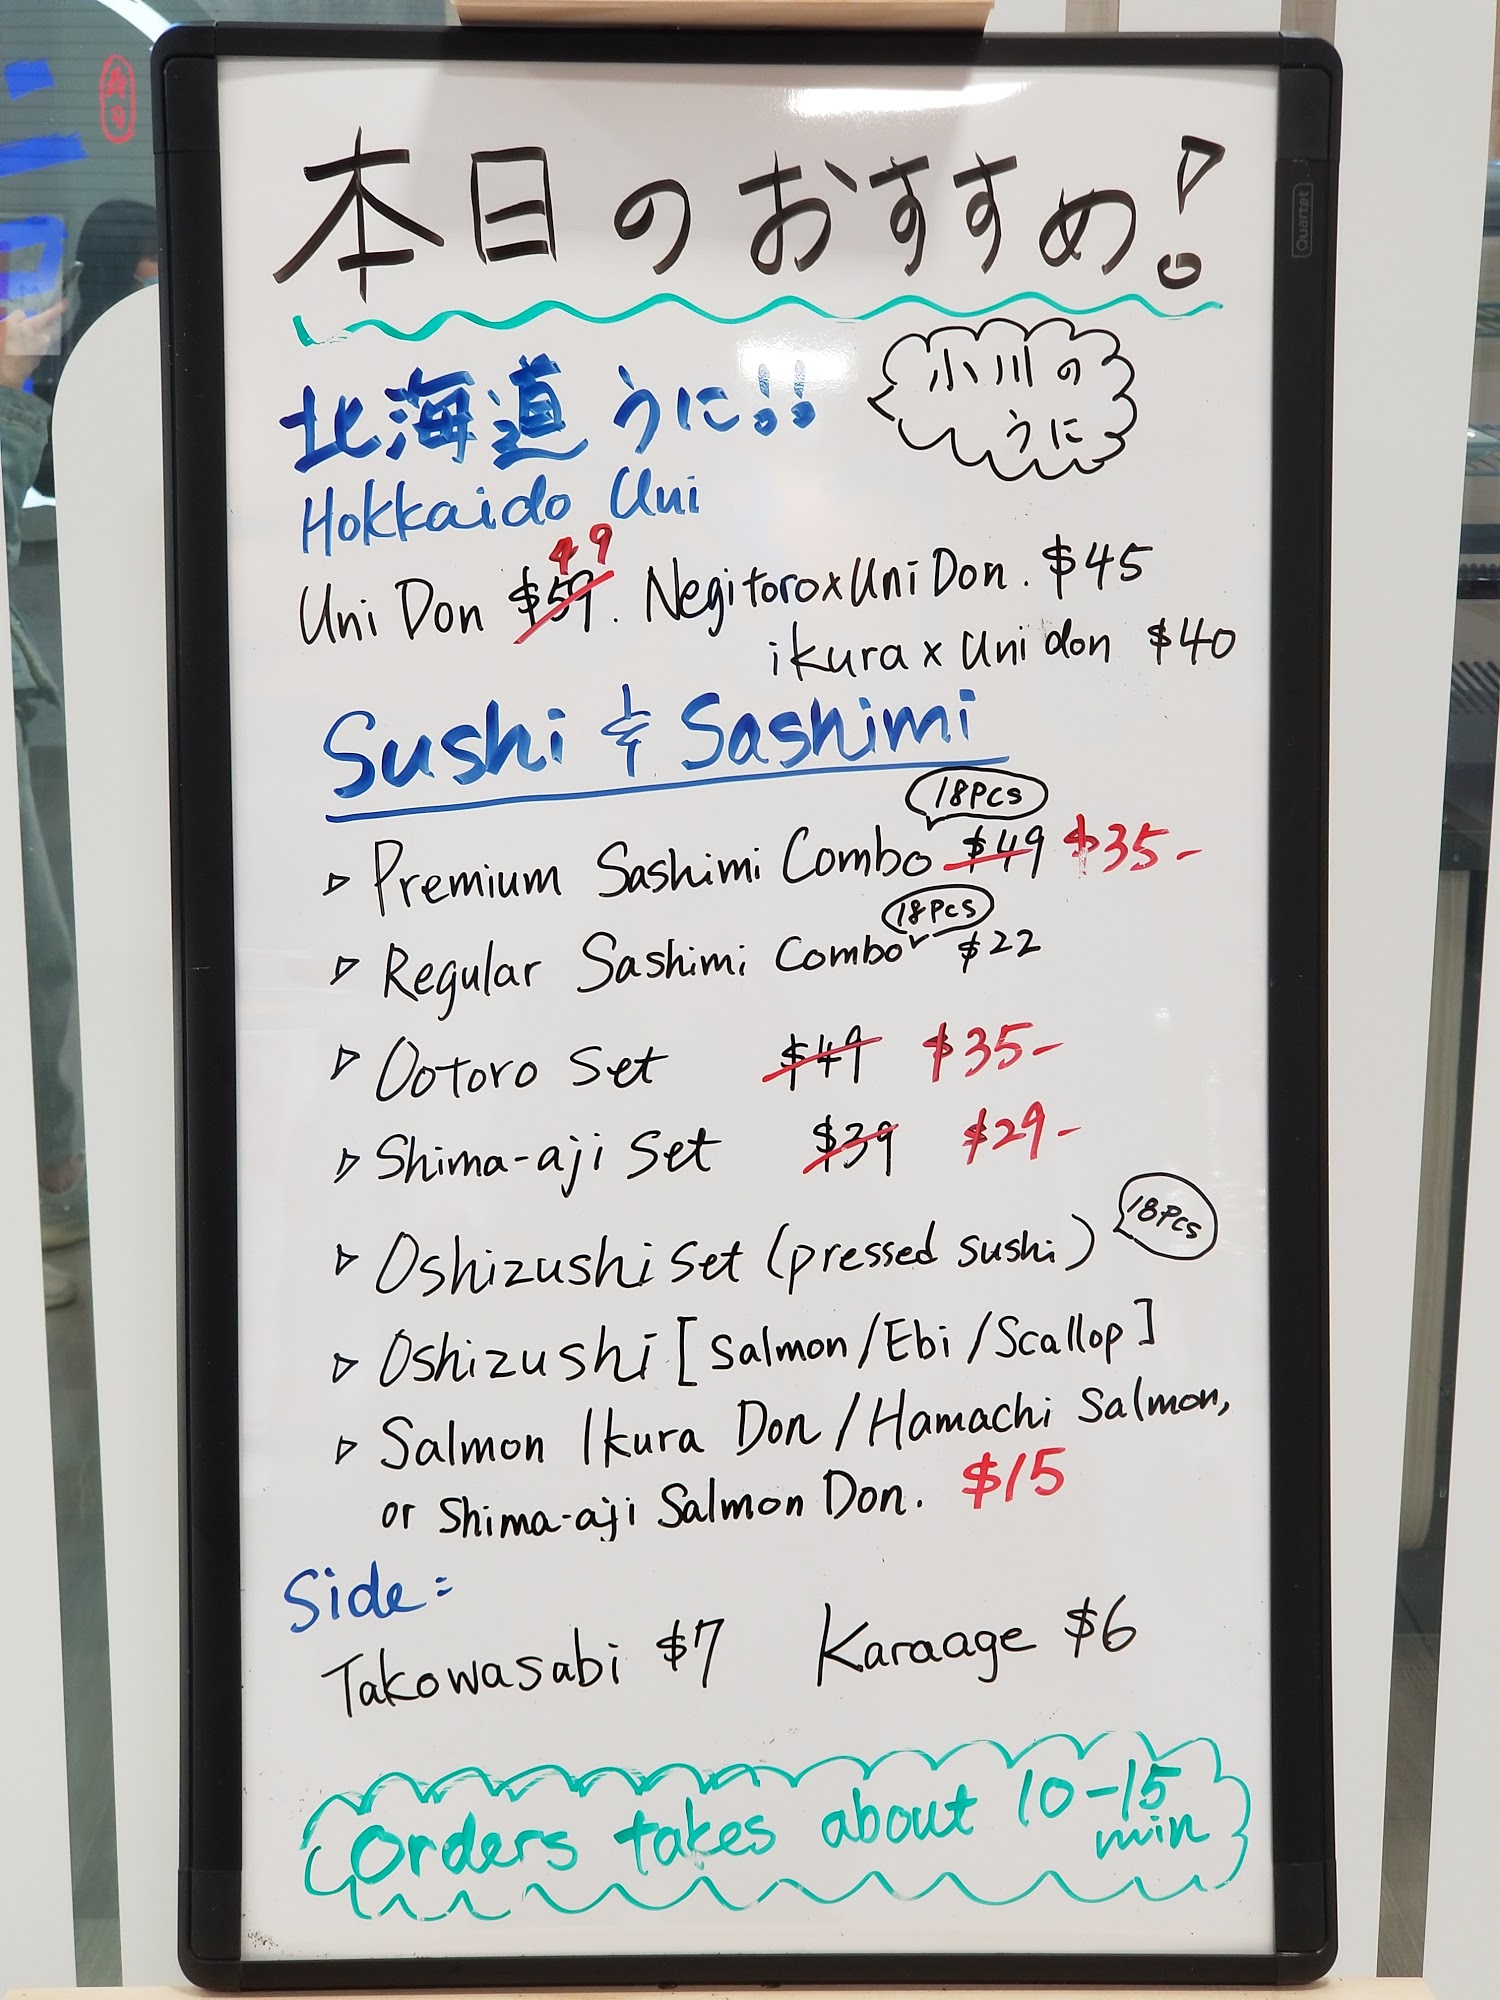 本日のおすすめ!
北海道うに!!
小川の
うに
Hokkaido Uni
Uni Don $59 49. Negitoro x Uni Don. $45
ikura x Uni don $40
Sushi & Sashimi
18pcs
▷ Premium Sashimi Combo $49 $35-
18pcs
▷ Regular Sashimi Combo $22
▷ Ootoro Set $49 $35-
▷ Shima-aji Set $39 $29-
▷ Oshizushi Set (pressed sushi) 18pcs
▷ Oshizushi [Salmon/Ebi/Scallop]
▷ Salmon Ikura Don/Hamachi Salmon,
or Shima-aji Salmon Don. $15
Side:
Takowasabi $7 Karaage $6
Orders takes about 10-15
min
Quartet